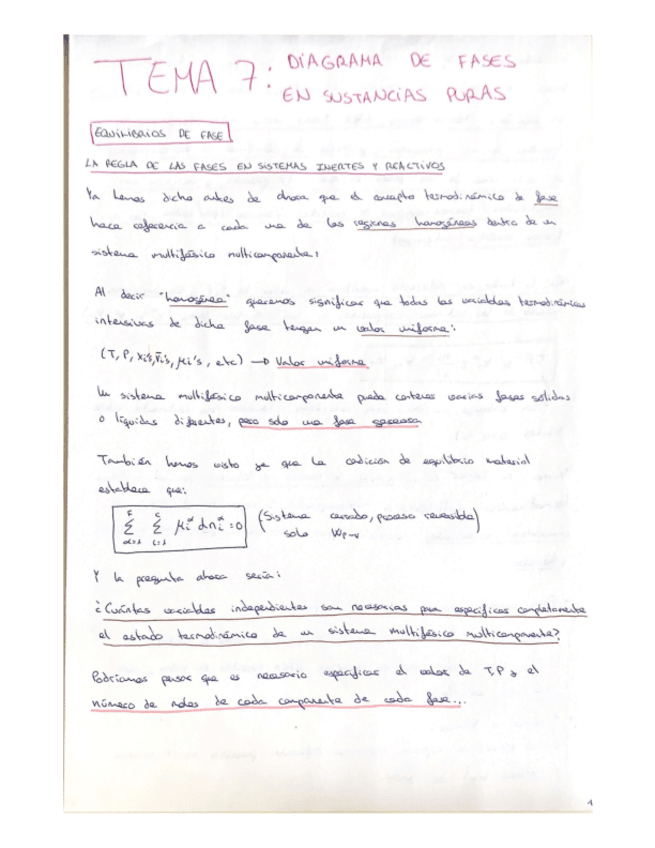 TEMA 7: DIAGRAMA DE FASES
EN SUSTANCIAS PURAS
EQUILIBRIOS DE FASE
LA REGLA DE LAS FASES EN SISTEMAS INERTES Y REACTIVOS
Ya hemos dicho antes de ahora que el concepto termodinámico de fase
hace referencia a cada una de las regiones homogéneas dentro de un
sistema multifásico multicomponente.
Al decir "homogénea" queremos significar que todas las variables termodinámicas
intensivas de dicha fase tengan un valor uniforme:
(T, P, xi's, V̅i's, μi's, etc) → Valor uniforme
Un sistema multifásico multicomponente puede contener varias fases sólidas
o líquidas diferentes, pero solo una fase gaseosa
También hemos visto ya que la condición de equilibrio material
establece que:
F Σ α=1 c Σ i=1 μi^α dni^α = 0 (Sistema cerrado, proceso reversible)
solo Wp-v
Y la pregunta ahora sería:
¿Cuántas variables independientes son necesarias para especificar completamente
el estado termodinámico de un sistema multifásico multicomponente?
Podríamos pensar que es necesario especificar el valor de T, P y el
número de moles de cada componente de cada fase...
1